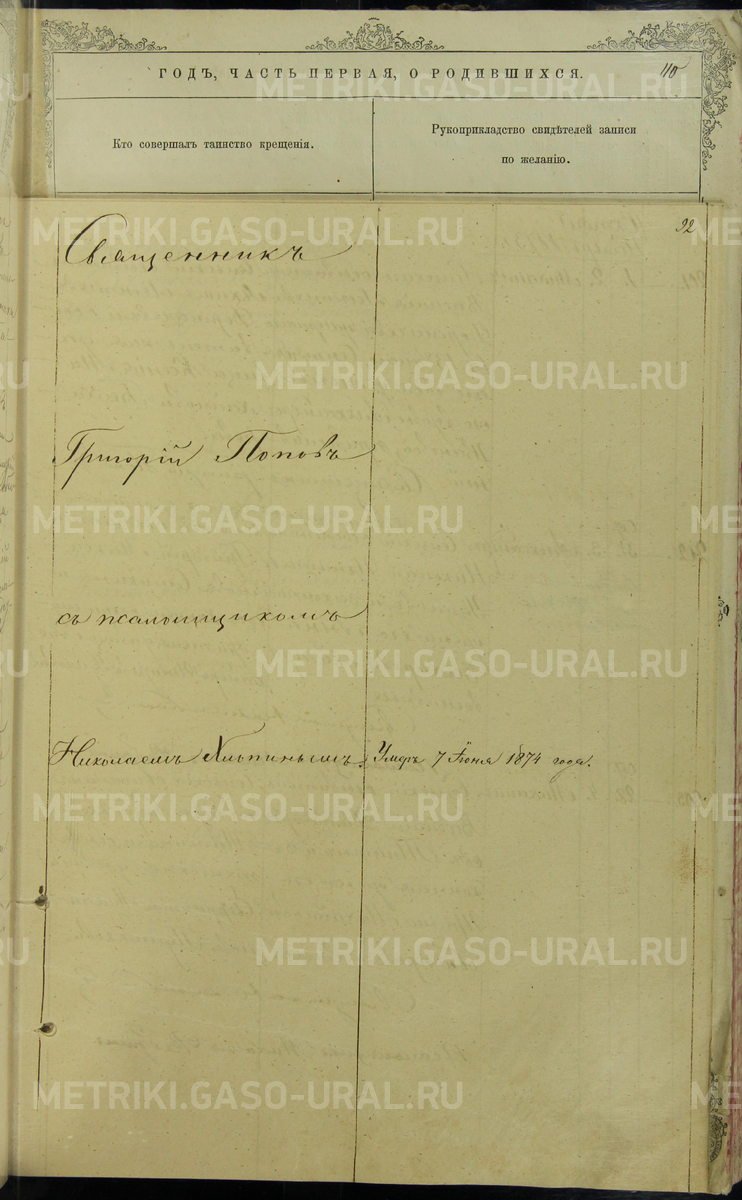 ГОДЪ, ЧАСТЬ ПЕРВАЯ, О РОДИВШИХСЯ.
110
Кто совершалъ таинство крещенія.
Рукоприкладство свидѣтелей записи
по желанію.
92
Священникъ
Григорій Поповъ
съ псаломщикомъ
Николаемъ
Умеръ 7 Іюня 1874 года.
METRIKI.GASO-URAL.RU